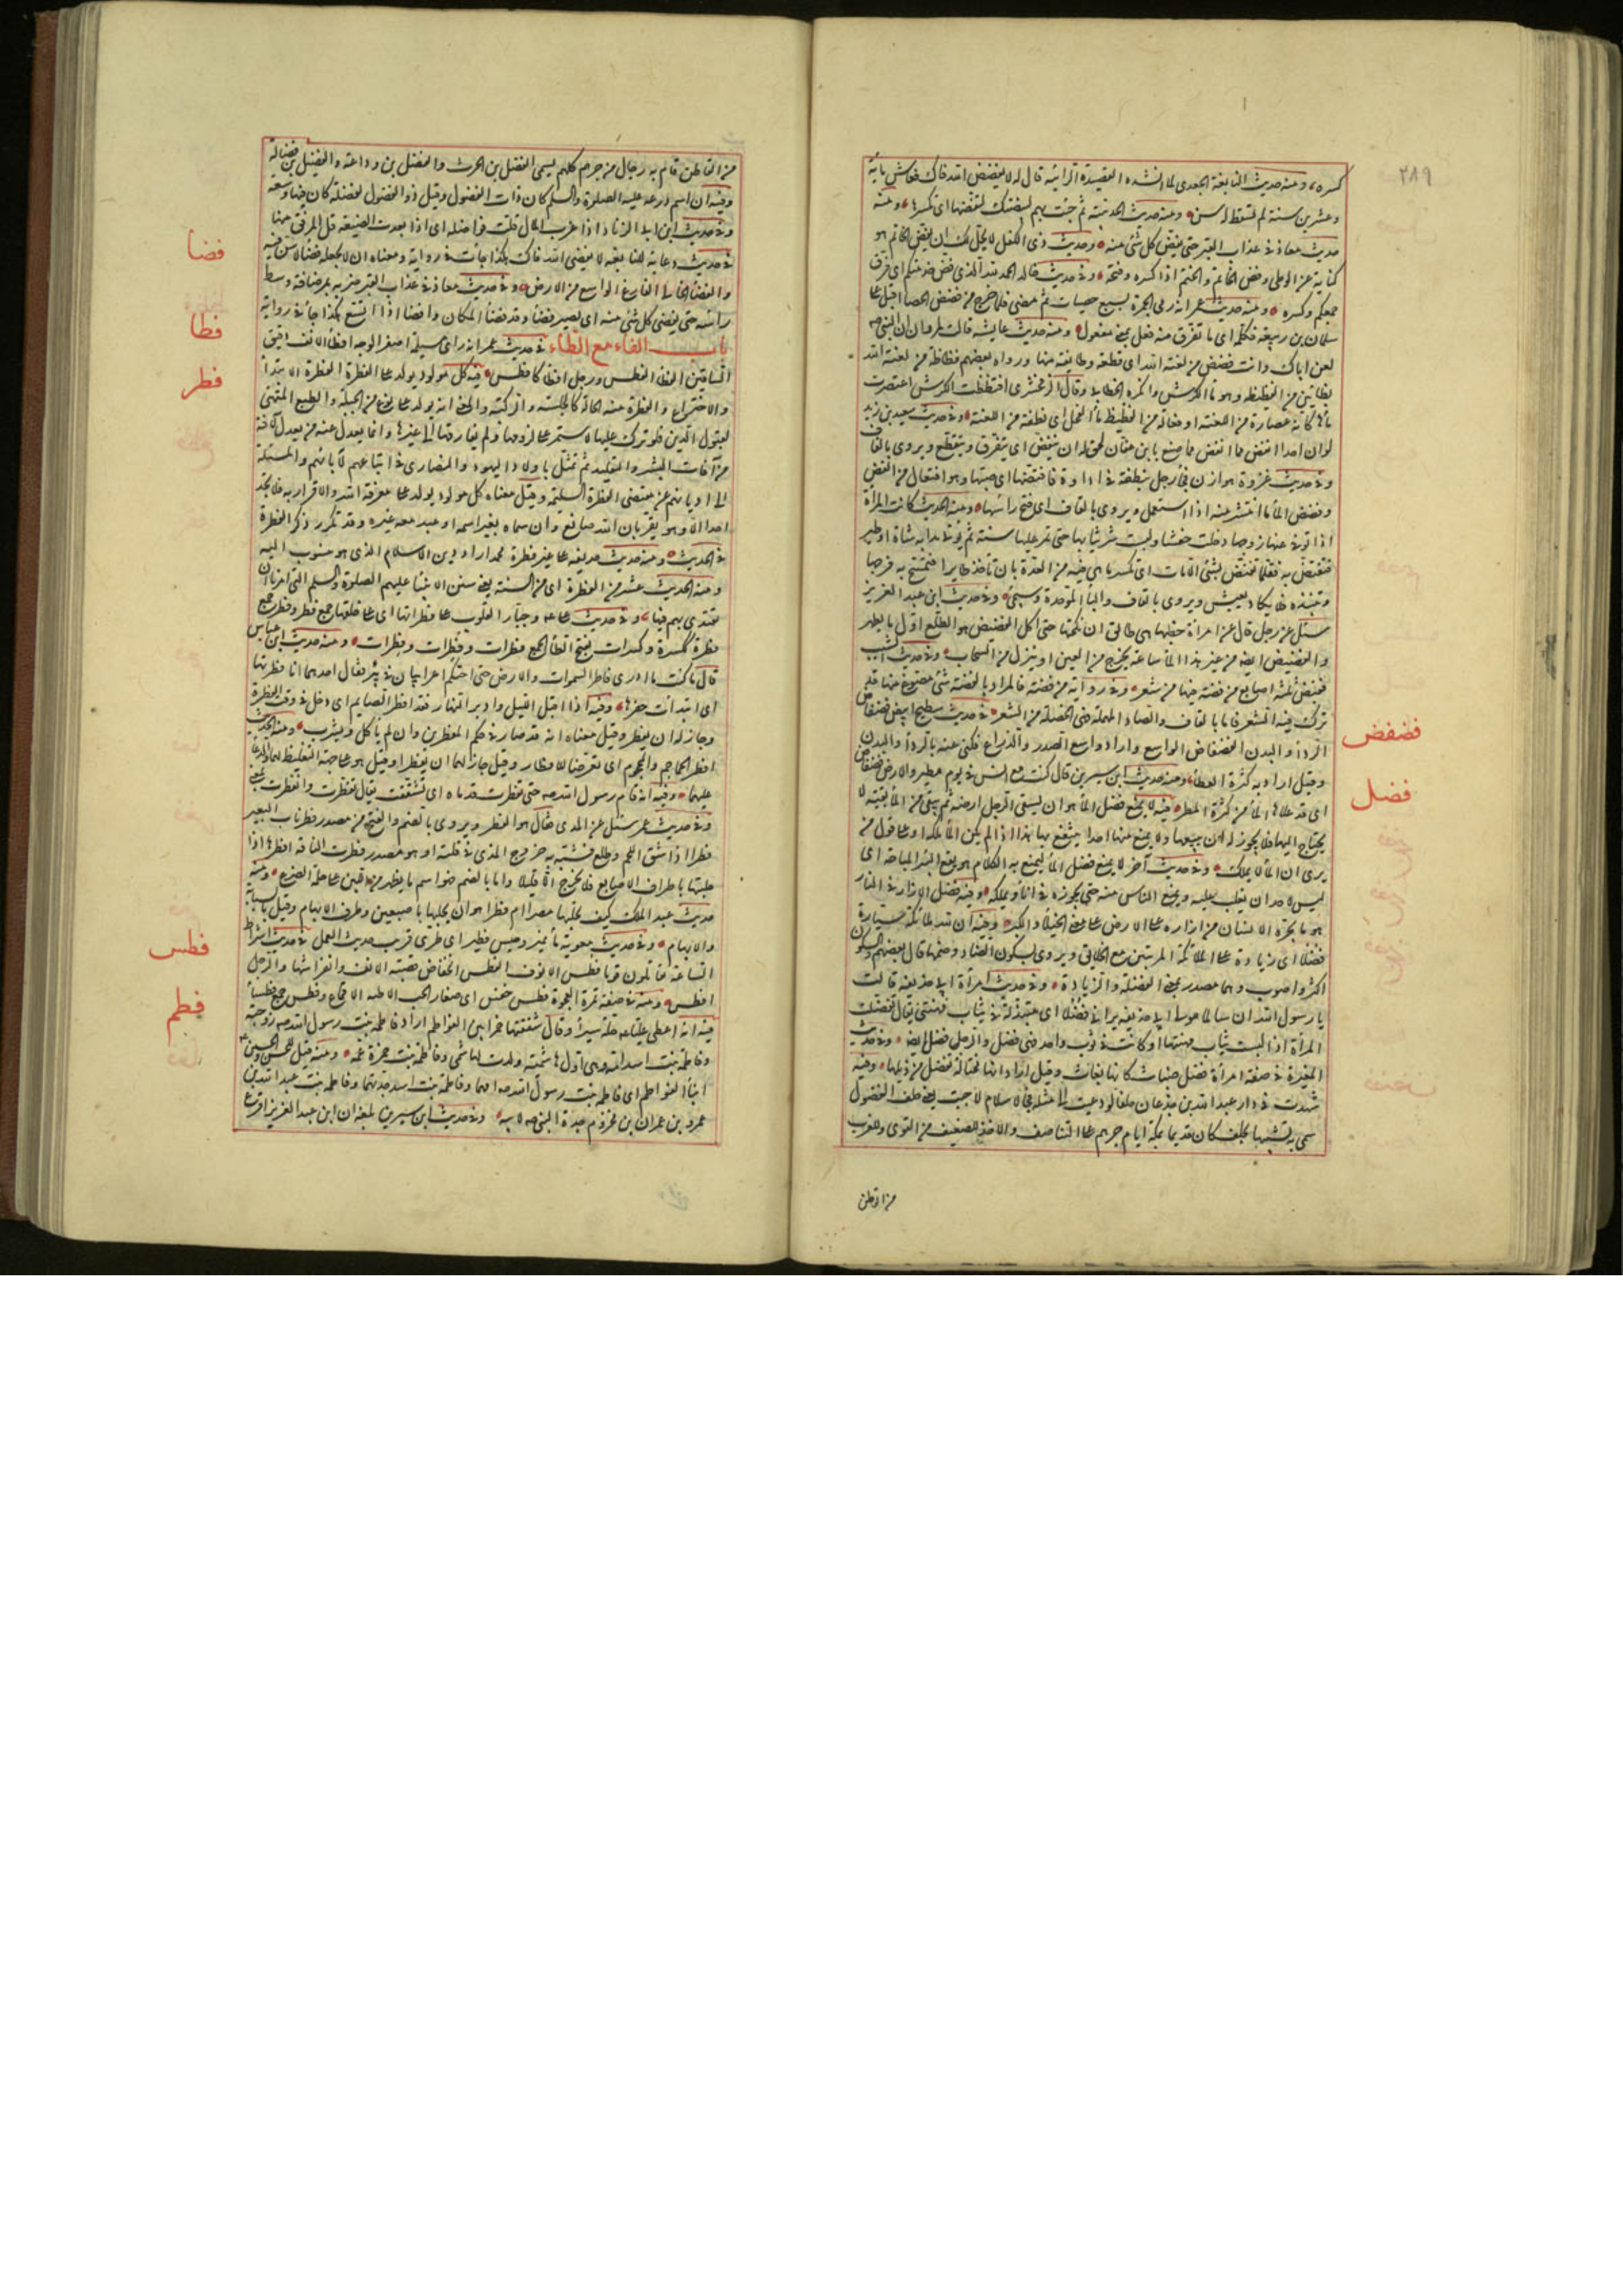 ٢٨٩
كسره، ومنه حديث النابغة الجعدي لما انشده القصيدة الرائية قال له لا يفضض الله فاك فعاش ماية
وعشرين سنة لم تسقط له سن ومنه حديث الحديبية ثم جئت بهم لبيضتك لتفضها اى تكسرها، ومنه
حديث معاذ في عذاب القبر حتى يفض كل شئ منه وحديث ذي الكفل لا يحل لك ان تفض الخاتم هو
كناية عن الوطى وفض الخاتم والختم اذا كسره وفتحه، وفي حديث خالد الحمد لله الذي فض خدمتكم اى فرق
جمعكم وكسره ومنه حديث عمر انه رمى الجمرة بسبع حصيات ثم مضى فلما خرج من فضض الحصا اقبل على
سلمان بن ربيعة فكلمه اى ما تفرق منه فعل بمعنى مفعول ومنه حديث عايشة قالت لمروان ان النبي صه
لعن اباك وانت فضض من لعنة الله اى قطعة وطايفة منها ورواه بعضهم فظاظة من لعنة الله
بظائين من الفظيظ وهو ماء الكرش وانكره الخطابي وقال الزمخشري افتظظت الكرش اعتصرت
ماءها كانه عصارة من اللعنة او فعالة من الفظيظ ماء الفحل اى نطفة من اللعنة وفي حديث سعيد بن زيد
لو ان احدا انفض مما صنع بابن عفان لحق له ان ينفض اى يتفرق ويتقطع ويروى بالقاف
وفي حديث غزوة هوازن فجاء رجل بنطفة في اداوة فافتضها اى صبها وهو افتعال من الفض
وفضض الماء ما انتشر منه اذا استعمل ويروى بالقاف اى فتح رأسها ومنه الحديث كانت المرأة
اذا توفي عنها زوجها دخلت حفشا ولبست شر ثيابها حتى تمر عليها سنة ثم تؤتى بدابة شاة او طير
فتفتض به فقلما تفتض بشئ الا مات اى تكسر ما هي فيه من العدة بان تأخذ طايرا فتمسح به فرجها
وتنبذه فلا يكاد يعيش ويروى بالقاف والباء الموحدة وسيجئ وفي حديث ابن عبد العزيز
سئل عن رجل قال عن امرأة خطبها هي طالق ان نكحتها حتى اكل الفضيض هو الطلع اول ما يظهر
والفضيض ايضا من غير هذا الماء ساعة يخرج من العين او ينزل من السحاب وفي حديث الشيب
فقبض ثلثة اصابع من فضة فيها من شعر وفي رواية من فضة فالمراد بالفضة شئ مصنوع منها قد
ترك فيه الشعر فاما بالقاف والصاد المهملة فهي الخصلة من الشعر في حديث سطيح ابيض فضفاض
فضفض
الرداء والبدن الفضفاض الواسع واراد واسع الصدر والذراع فكنى عنه بالرداء والبدن
وقيل اراد به كثرة العطاء ومنه حديث ابن سيرين قال كنت مع انس في يوم مطير والارض فضفاض
اى قد علاها الماء من كثرة المطر فيه لا يمنع فضل الماء هو ان يسقي الرجل ارضه ثم يبقى من الماء بقية لا
فضل
يحتاج اليها فلا يجوز له ان يبيعها ولا يمنع منها احدا ينتفع بها هذا اذا لم يكن الماء ملكه او على قول من
يرى ان الماء لا يملك وفي حديث آخر لا يمنع فضل الماء ليمنع به الكلاء هو نفع البئر المباحة اى
ليس لاحد ان يغلب عليه ويمنع الناس منه حتى يحوزه في اناء ويملكه وفيه فضل الازار في النار
هو ما يجره الانسان من ازاره على الارض على معنى الخيلاء والكبر وفيه ان لله ملائكة سيارة
فضلا اى زيادة على الملائكة المرتبين مع الخلائق ويروى بسكون الضاد وضمها قال بعضهم والسكون
اكثر واصوب وهما مصدر بمعنى الفضلة والزيادة وفي حديث امرأة ابي حذيفة قالت
يا رسول الله ان سالما مولى ابي حذيفة يراني فضلا اى متبذلة في ثياب مهنتي يقال تفضلت
المرأة اذا لبست ثياب مهنتها او كانت في ثوب واحد فهي فضل والرجل فضل ايضا وفي حديث
المغيرة في صفة امرأة فضل ضباث كانها بغاث وقيل اراد انها مختالة تفضل من ذيلها وفيه
شهدت في دار عبد الله بن جدعان حلفا لو دعيت الى مثله في الاسلام لاجبت يعني حلف الفضول
سمي به تشبيها بحلف كان قديما بمكة ايام جرهم على التناصف والاخذ للضعيف من القوى وللغريب
من القاطن
من القاطن قام به رجال من جرهم كلهم يسمى الفضل بن الحرث والفضل بن وداعة والفضيل بن فضالة
وفيه ان اسم درعه عليه الصلوة والسلم كان ذات الفضول وقيل ذو الفضول لفضلة كان فيها وسعة
وفي حديث ابن ابي الزناد اذا عزب المال قلت فواضله اى اذا بعدت الضيعة قل المرفق منها
في حديث دعائه للنابغة لا يفضي الله فاك هكذا جاءت في رواية ومعناه ان لا يجعله فضاء لا سن فيه
فضا
والفضاء الخالي الفارغ الواسع من الارض وفي حديث معاذ في عذاب القبر ضربه بمرضافة وسط
رأسه حتى يفضي كل شئ منه اى يصير فضاء وقد فضا المكان وافضا اذا اتسع هكذا جاء في رواية
باب الفاء مع الطاء في حديث عمر انه راى مسيلمة اصفر الوجه افطاء الانف دقيق
فطا
الساقين الفطأ الفطس ورجل افطا كافطس فيه كل مولود يولد على الفطرة الفطرة الابتداء
فطر
والاختراع والفطرة منه الحالة كالجلسة والركبة والمعنى انه يولد على نوع من الجبلة والطبع المتهيئ
لقبول الدين فلو ترك عليها لاستمر على لزومها ولم يفارقها الى غيرها وانما يعدل عنه من يعدل لآفة
من آفات البشر والتقليد ثم تمثل باولاد اليهود والنصارى في اتباعهم لآبائهم والميل
الى اديانهم عن مقتضى الفطرة السليمة وقيل معناه كل مولود يولد على معرفة الله والاقرار به فلا تجد
احدا الا وهو يقر بان الله صانع وان سماه بغير اسمه او عبد معه غيره وقد تكرر ذكر الفطرة
في الحديث ومنه حديث حذيفة على غير فطرة محمد اراد دين الاسلام الذي هو منسوب اليه
ومنه الحديث عشر من الفطرة اى من السنة يعني سنن الانبياء عليهم الصلوة والسلم التي امرنا ان
نقتدي بهم فيها، وفي حديث على وجبار القلوب على فطراتها اى على خلقها جمع فطر وفطر جمع
فطرة ككسرة وكسرات بفتح الطاء الجمع فطرات وفطرات وفطرات ومنه حديث ابن عباس
قال ما كنت ادرى ما فاطر السموات والارض حتى احتكم اعرابيان في بئر فقال احدهما انا فطرتها
اى ابتدأت حفرها وفيه اذا اقبل الليل وادبر النهار فقد افطر الصايم اى دخل في وقت الفطرة
وجاز له ان يفطر وقيل معناه انه قد صار في حكم المفطرين وان لم ياكل ويشرب ومنه الحديث
افطر الحاجم والمحجوم اى تعرضا للافطار وقيل حان لهما ان يفطرا وقيل هو على جهة التغليظ لهما والدعاء
عليهما وفيه انه قام رسول الله صه حتى تفطرت قدماه اى تشققت يقال تفطرت وانفطرت بمعنى
وفي حديث عمر سئل عن المذى فقال هو الفطر ويروى بالضم والفتح من مصدر فطر ناب البعير
فطرا اذا شق اللحم وطلع فشبه به خروج المذى في قلته او هو مصدر فطرت الناقة افطرها اذا
حلبتها باطراف الاصابع فلا يخرج الا قليلا واما بالضم فهو اسم ما يظهر من اللبن على حلمة الضرع ومنه
حديث عبد الملك كيف تحلبها مصرا ام فطرا هو ان يحلبها باصبعين وطرف الابهام وقيل بالسبابة
والابهام وفي حديث معوية ماء نمير وحيس فطير اى طرى قريب حديث العمل في حديث اشراط
فطس
الساعة تقاتلون قوما فطس الانوف الفطس انخفاض قصبة الانف وانفراشها والرجل
افطس ومنه في صفة تمرة العجوة فطس خنس اى صغار الحب لاطية الاقماع وفطس جمع فطساء
فطم
فيه انه اعطى عليا حلة سيراء وقال شققها خمرا بين الفواطم اراد فاطمة بنت رسول الله صه زوجته
وفاطمة بنت اسد امه وهي اول هاشمية ولدت لهاشمي وفاطمة بنت حمزة عمه ومنه قيل للحسن والحسين
ابناء الفواطم اى فاطمة بنت رسول الله صه امهما وفاطمة بنت اسد جدتهما وفاطمة بنت عبد الله بن
عمرو بن عمران بن مخزوم جدة النبي صه لابيه وفي حديث ابن سيرين بلغه ان ابن عبد العزيز اقرع